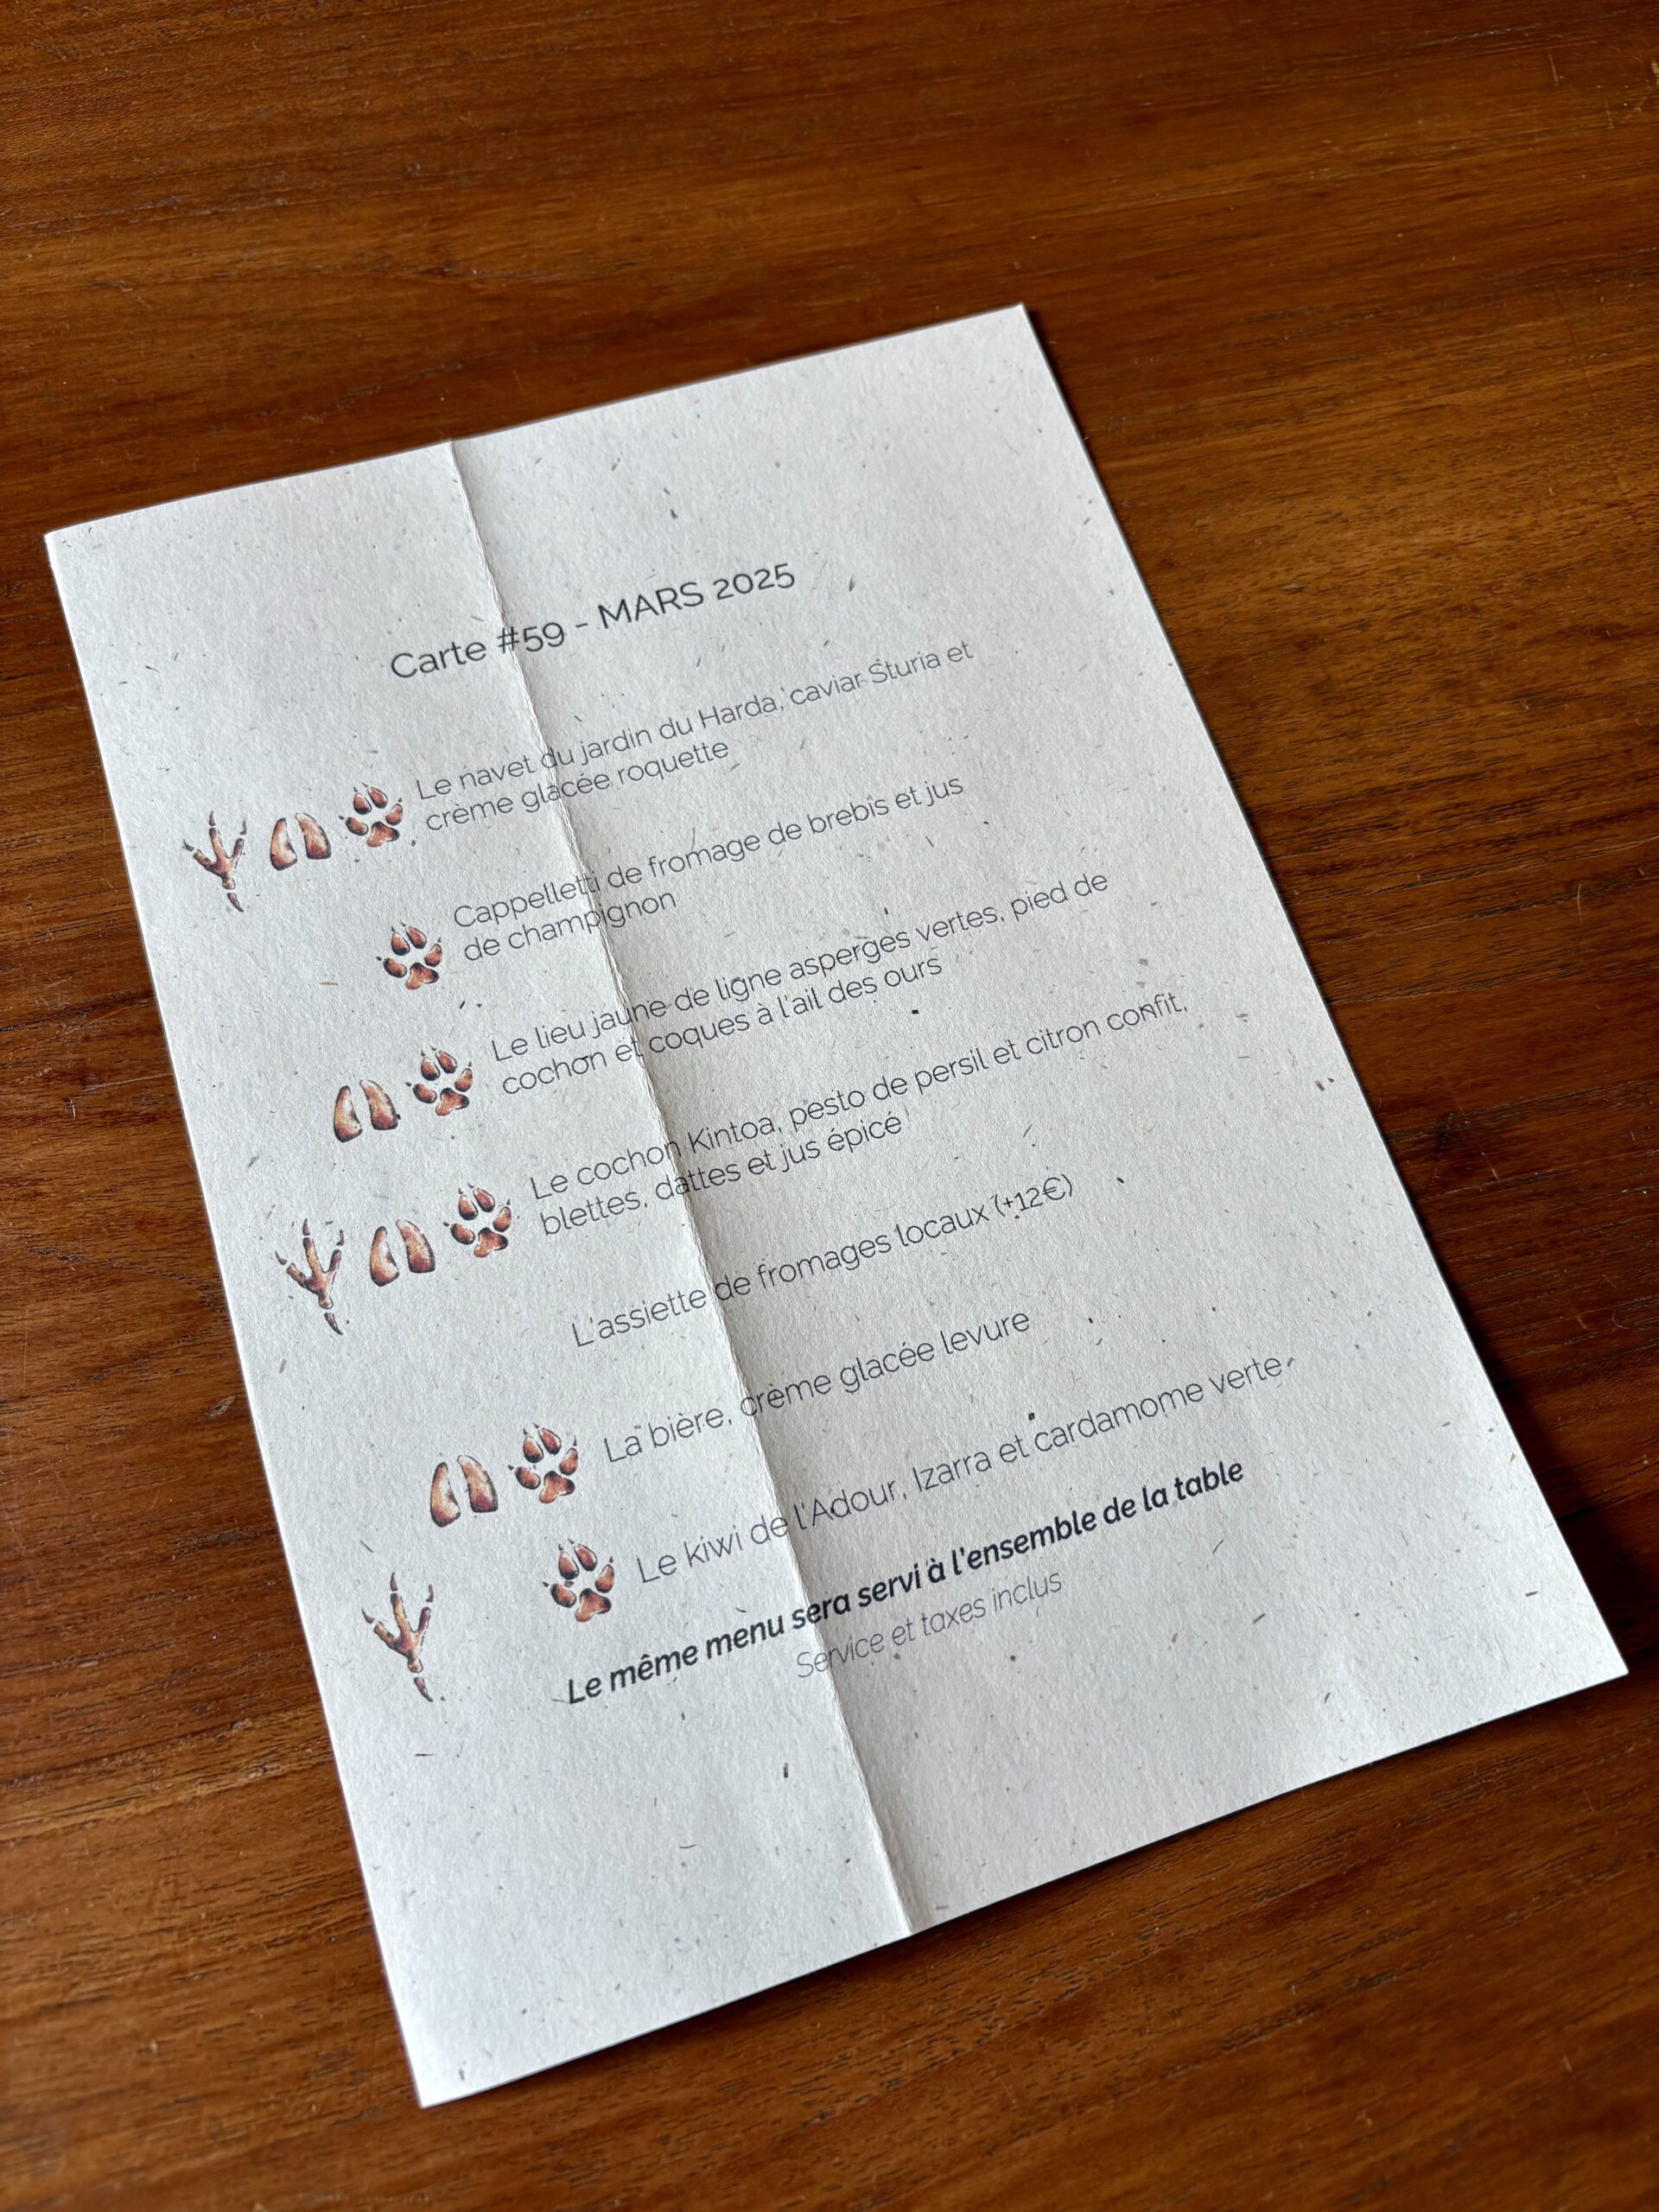 Carte #59 - MARS 2025
Le navet du jardin du Harda, caviar Sturia et
crème glacée roquette
Cappelletti de fromage de brebis et jus
de champignon
Le lieu jaune de ligne asperges vertes, pied de
cochon et coques à l'ail des ours
Le cochon Kintoa, pesto de persil et citron confit,
blettes, dattes et jus épicé
L'assiette de fromages locaux (+12€)
La bière, crème glacée levure
Le kiwi de l'Adour, Izarra et cardamome verte
Le même menu sera servi à l'ensemble de la table
Service et taxes inclus